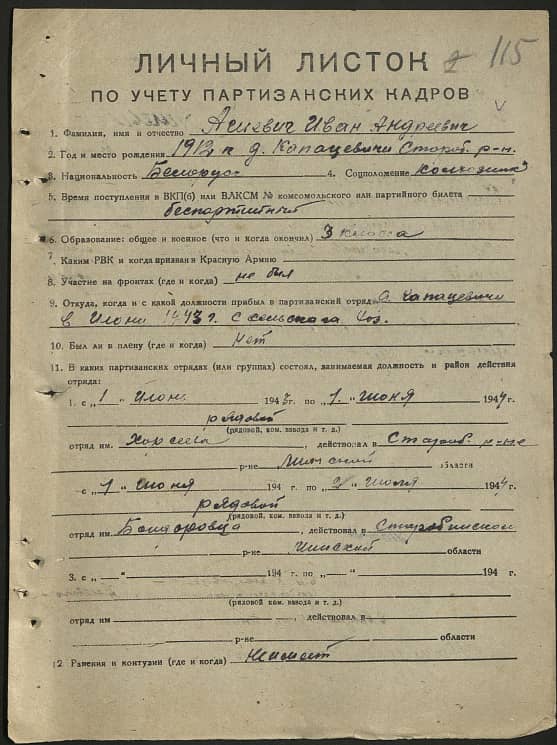 115
ЛИЧНЫЙ ЛИСТОК
ПО УЧЕТУ ПАРТИЗАНСКИХ КАДРОВ
1. Фамилия, имя и отчество Иван Андреевич
2. Год и место рождения 1912 г. д. Капацевичи Староб. р-н.
3. Национальность Белорус 4. Соцположение колхозник
5. Время поступления в ВКП(б) или ВЛКСМ № комсомольского или партийного билета
беспартийный
6. Образование: общее и военное (что и когда окончил) 3 класса
7. Каким РВК и когда призван в Красную Армию
8. Участие на фронтах (где и когда) не был
9. Откуда, когда и с какой должности прибыл в партизанский отряд д. Капацевичи
в 1943 г. С сельского хоз.
10. Был ли в плену (где и когда) Нет
11. В каких партизанских отрядах (или группах) состоял, занимаемая должность и район действия
отряда:
1. с „1" 1943 г. по „1." июня 1944 г.
рядовой
(рядовой, ком. взвода и т. д.)
отряд им. , действовал в Староб. р-не
р-не Минской области
с „1" июня 194 г. по „ " июля 1944 г.
рядовой
(рядовой, ком. взвода и т. д.)
отряд им. , действовал в Старобинском
р-не Минской области
3. с „—" 194 г. по „—" 194 г.
(рядовой, ком. взвода и т. д.)
отряд им. , действовал в
р-не области
12. Ранения и контузии (где и когда) Не имеет